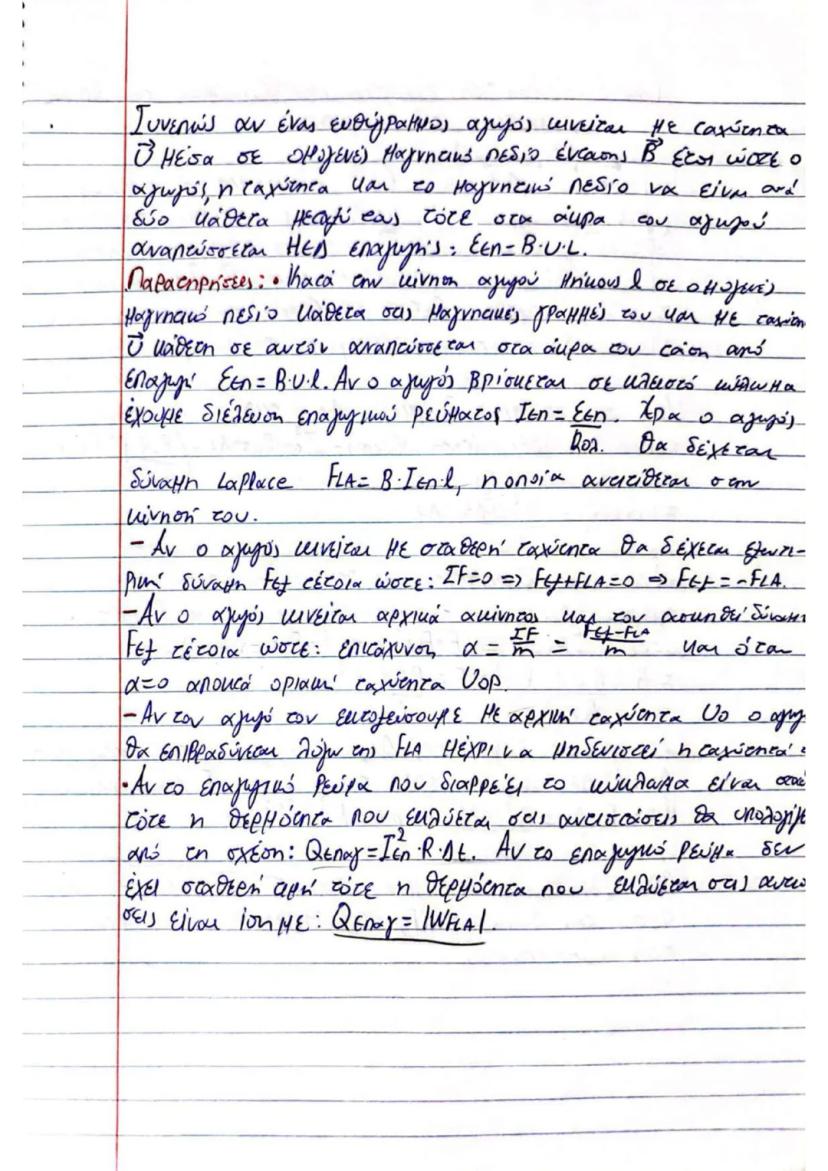 Συνεπώς αν ένας ευθύγραμμος αγωγός κινείται με ταχύτητα
υ⃗ μέσα σε ομογενές μαγνητικό πεδίο έντασης B⃗ έτσι ώστε ο
αγωγός, η ταχύτητα και το μαγνητικό πεδίο να είναι ανά
δύο κάθετα μεταξύ τους τότε στα άκρα του αγωγού
αναπτύσσεται ΗΕΔ επαγωγής: Εεπ=Β·υ·L.
Παρατηρήσεις: • Κατά την κίνηση αγωγού μήκους l σε ομογενές
μαγνητικό πεδίο κάθετα στις μαγνητικές γραμμές του και με
υ⃗ κάθετη σε αυτόν αναπτύσσεται στα άκρα του τάση από
επαγωγή Εεπ=Β·υ·l. Αν ο αγωγός βρίσκεται σε κλειστό κύκλωμα
έχουμε διέλευση επαγωγικού ρεύματος Ιεπ=Εεπ/Rολ. Άρα ο αγωγός
θα δέχεται
δύναμη Laplace FLA=B·Ιεπ·l, η οποία αντιτίθεται στην
κίνησή του.
- Αν ο αγωγός κινείται με σταθερή ταχύτητα θα δέχεται εξωτε-
ρική δύναμη Fεξ τέτοια ώστε: ΣF=0 => Fεξ+FLA=0 => Fεξ=-FLA.
- Αν ο αγωγός κινείται αρχικά ακίνητος και του ασκηθεί
Fεξ τέτοια ώστε: επιτάχυνση α = ΣF/m = Fεξ-FLA/m και όταν
α=0 αποκτά οριακή ταχύτητα υορ.
- Αν τον αγωγό τον εκτοξεύσουμε με αρχική ταχύτητα υο ο
θα επιβραδύνεται λόγω της FLA μέχρι να μηδενιστεί η ταχύτητά
• Αν το επαγωγικό ρεύμα που διαρρέει το κύκλωμα είναι
τότε η θερμότητα που εκλύεται στις αντιστάσεις θα
από τη σχέση: Qεπαγ=Ι²επ·R·Δt. Αν το επαγωγικό ρεύμα δεν
έχει σταθερή τιμή τότε η θερμότητα που εκλύεται στις
σεις είναι ίση με: Qεπαγ=|WFLA|.